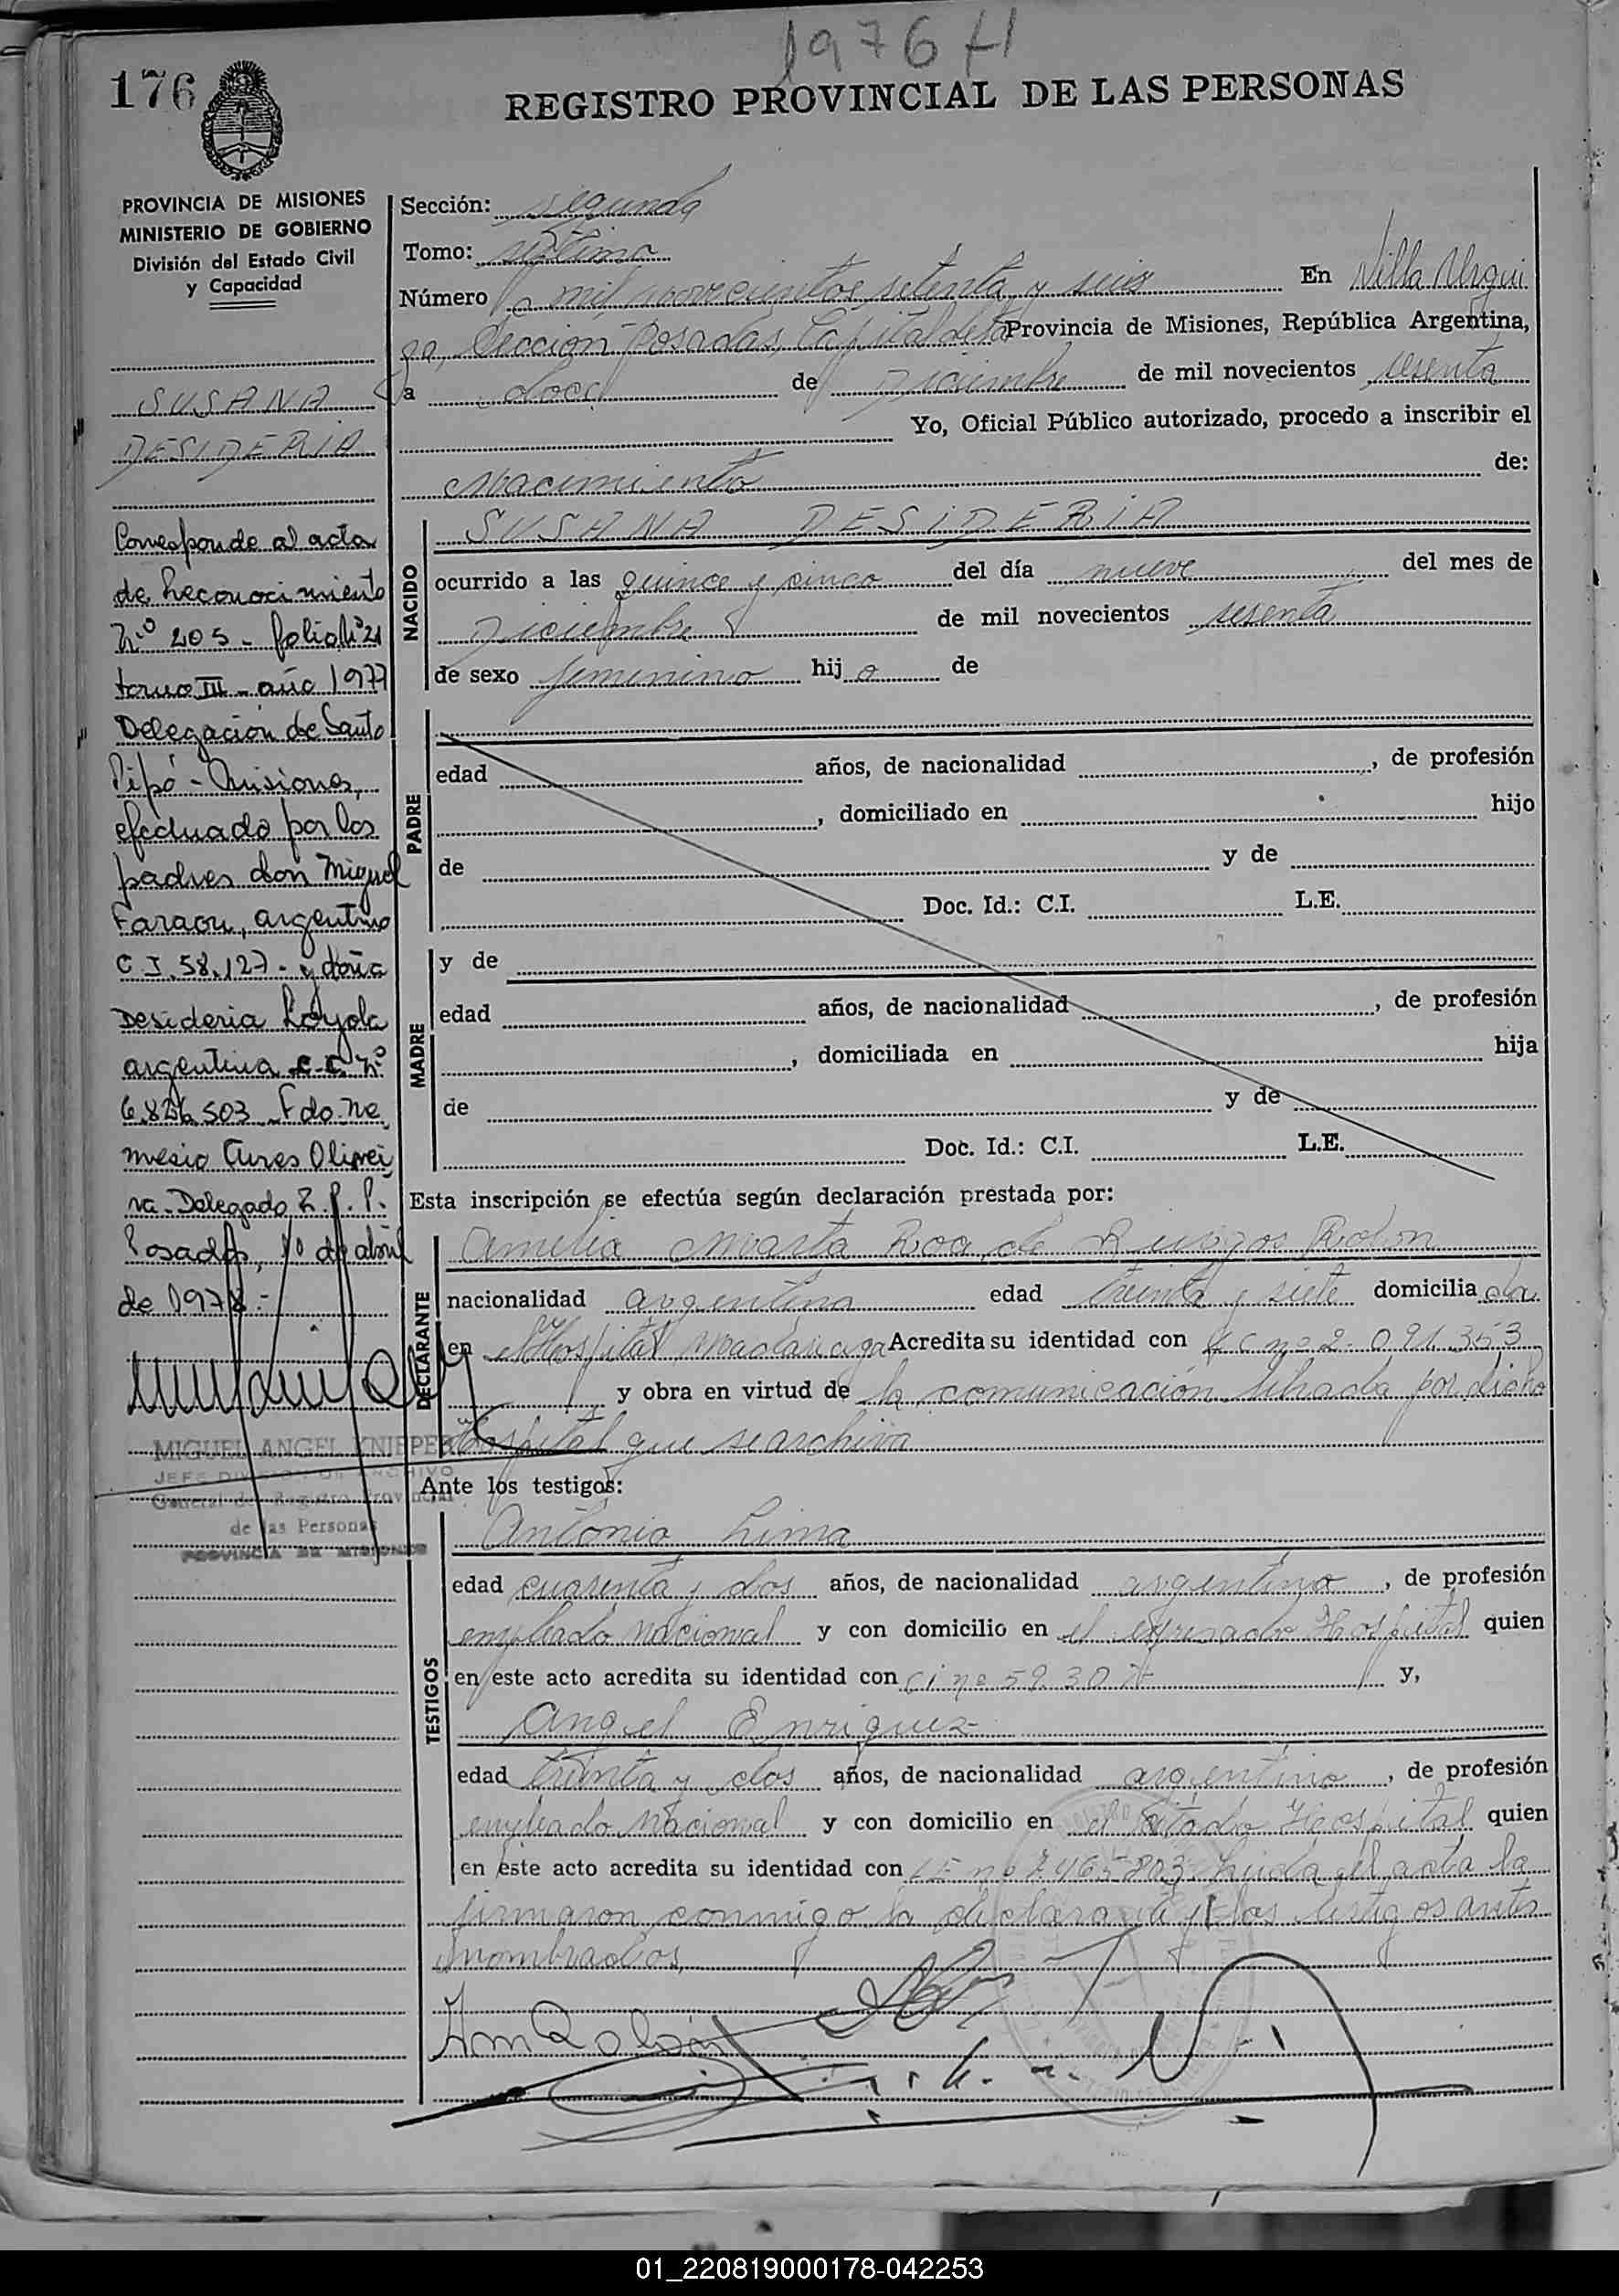 1976 H
176
REGISTRO PROVINCIAL DE LAS PERSONAS
PROVINCIA DE MISIONES
MINISTERIO DE GOBIERNO
División del Estado Civil
y Capacidad
SUSANA
DESIDERIA
Corresponde al acta
de Reconocimiento
N.º 205 - folio Nº 21
tomo III - año 1977
Delegación de Santo
Pipó - Misiones,
efectuado por los
padres don Miguel
Faraon, argentino
C I. 58.127 - y doña
Desideria Loyola
argentina C.C. nº
6.826.503 Fdo. Ne
mesio Aires Olivei
ra. Delegado R. P. P.
Posadas, 10 de abril
de 1978.-
MIGUEL ANGEL KNIEPER
JEFE DIVISION DE ARCHIVO
General del Registro Provincial
de las Personas
PROVINCIA DE MISIONES
Sección: segunda
Tomo: séptimo
Número mil novecientos setenta y seis En Villa Urqui
za, Sección Posadas, Capital de la Provincia de Misiones, República Argentina,
a doce de Diciembre de mil novecientos sesenta
Yo, Oficial Público autorizado, procedo a inscribir el
Nacimiento de:
NACIDO
SUSANA DESIDERIA
ocurrido a las quince y cinco del día nueve del mes de
Diciembre de mil novecientos sesenta
de sexo femenino hij a de
PADRE
edad años, de nacionalidad , de profesión
, domiciliado en hijo
de y de
Doc. Id.: C.I. L.E.
MADRE
y de
edad años, de nacionalidad , de profesión
, domiciliada en hija
de y de
Doc. Id.: C.I. L.E.
Esta inscripción se efectúa según declaración prestada por:
DECLARANTE
Amelia Marta Roa de Rolon
nacionalidad argentina edad treinta y siete domicilia da
en el Hospital Madariaga Acredita su identidad con L C nº 2.091.353
y obra en virtud de la comunicación librada por dicho
Hospital que se archiva
Ante los testigos:
TESTIGOS
Antonio Lima
edad cuarenta y dos años, de nacionalidad argentino , de profesión
empleado nacional y con domicilio en el expresado Hospital quien
en este acto acredita su identidad con C i nº 59.307 y,
Angel Enriquez
edad treinta y dos años, de nacionalidad argentino , de profesión
empleado Nacional y con domicilio en el citado Hospital quien
en este acto acredita su identidad con L E nº 7.465.803 Leida el acta la
firmaron conmigo la declarante y los testigos antes
nombrados,
01_220819000178-042253